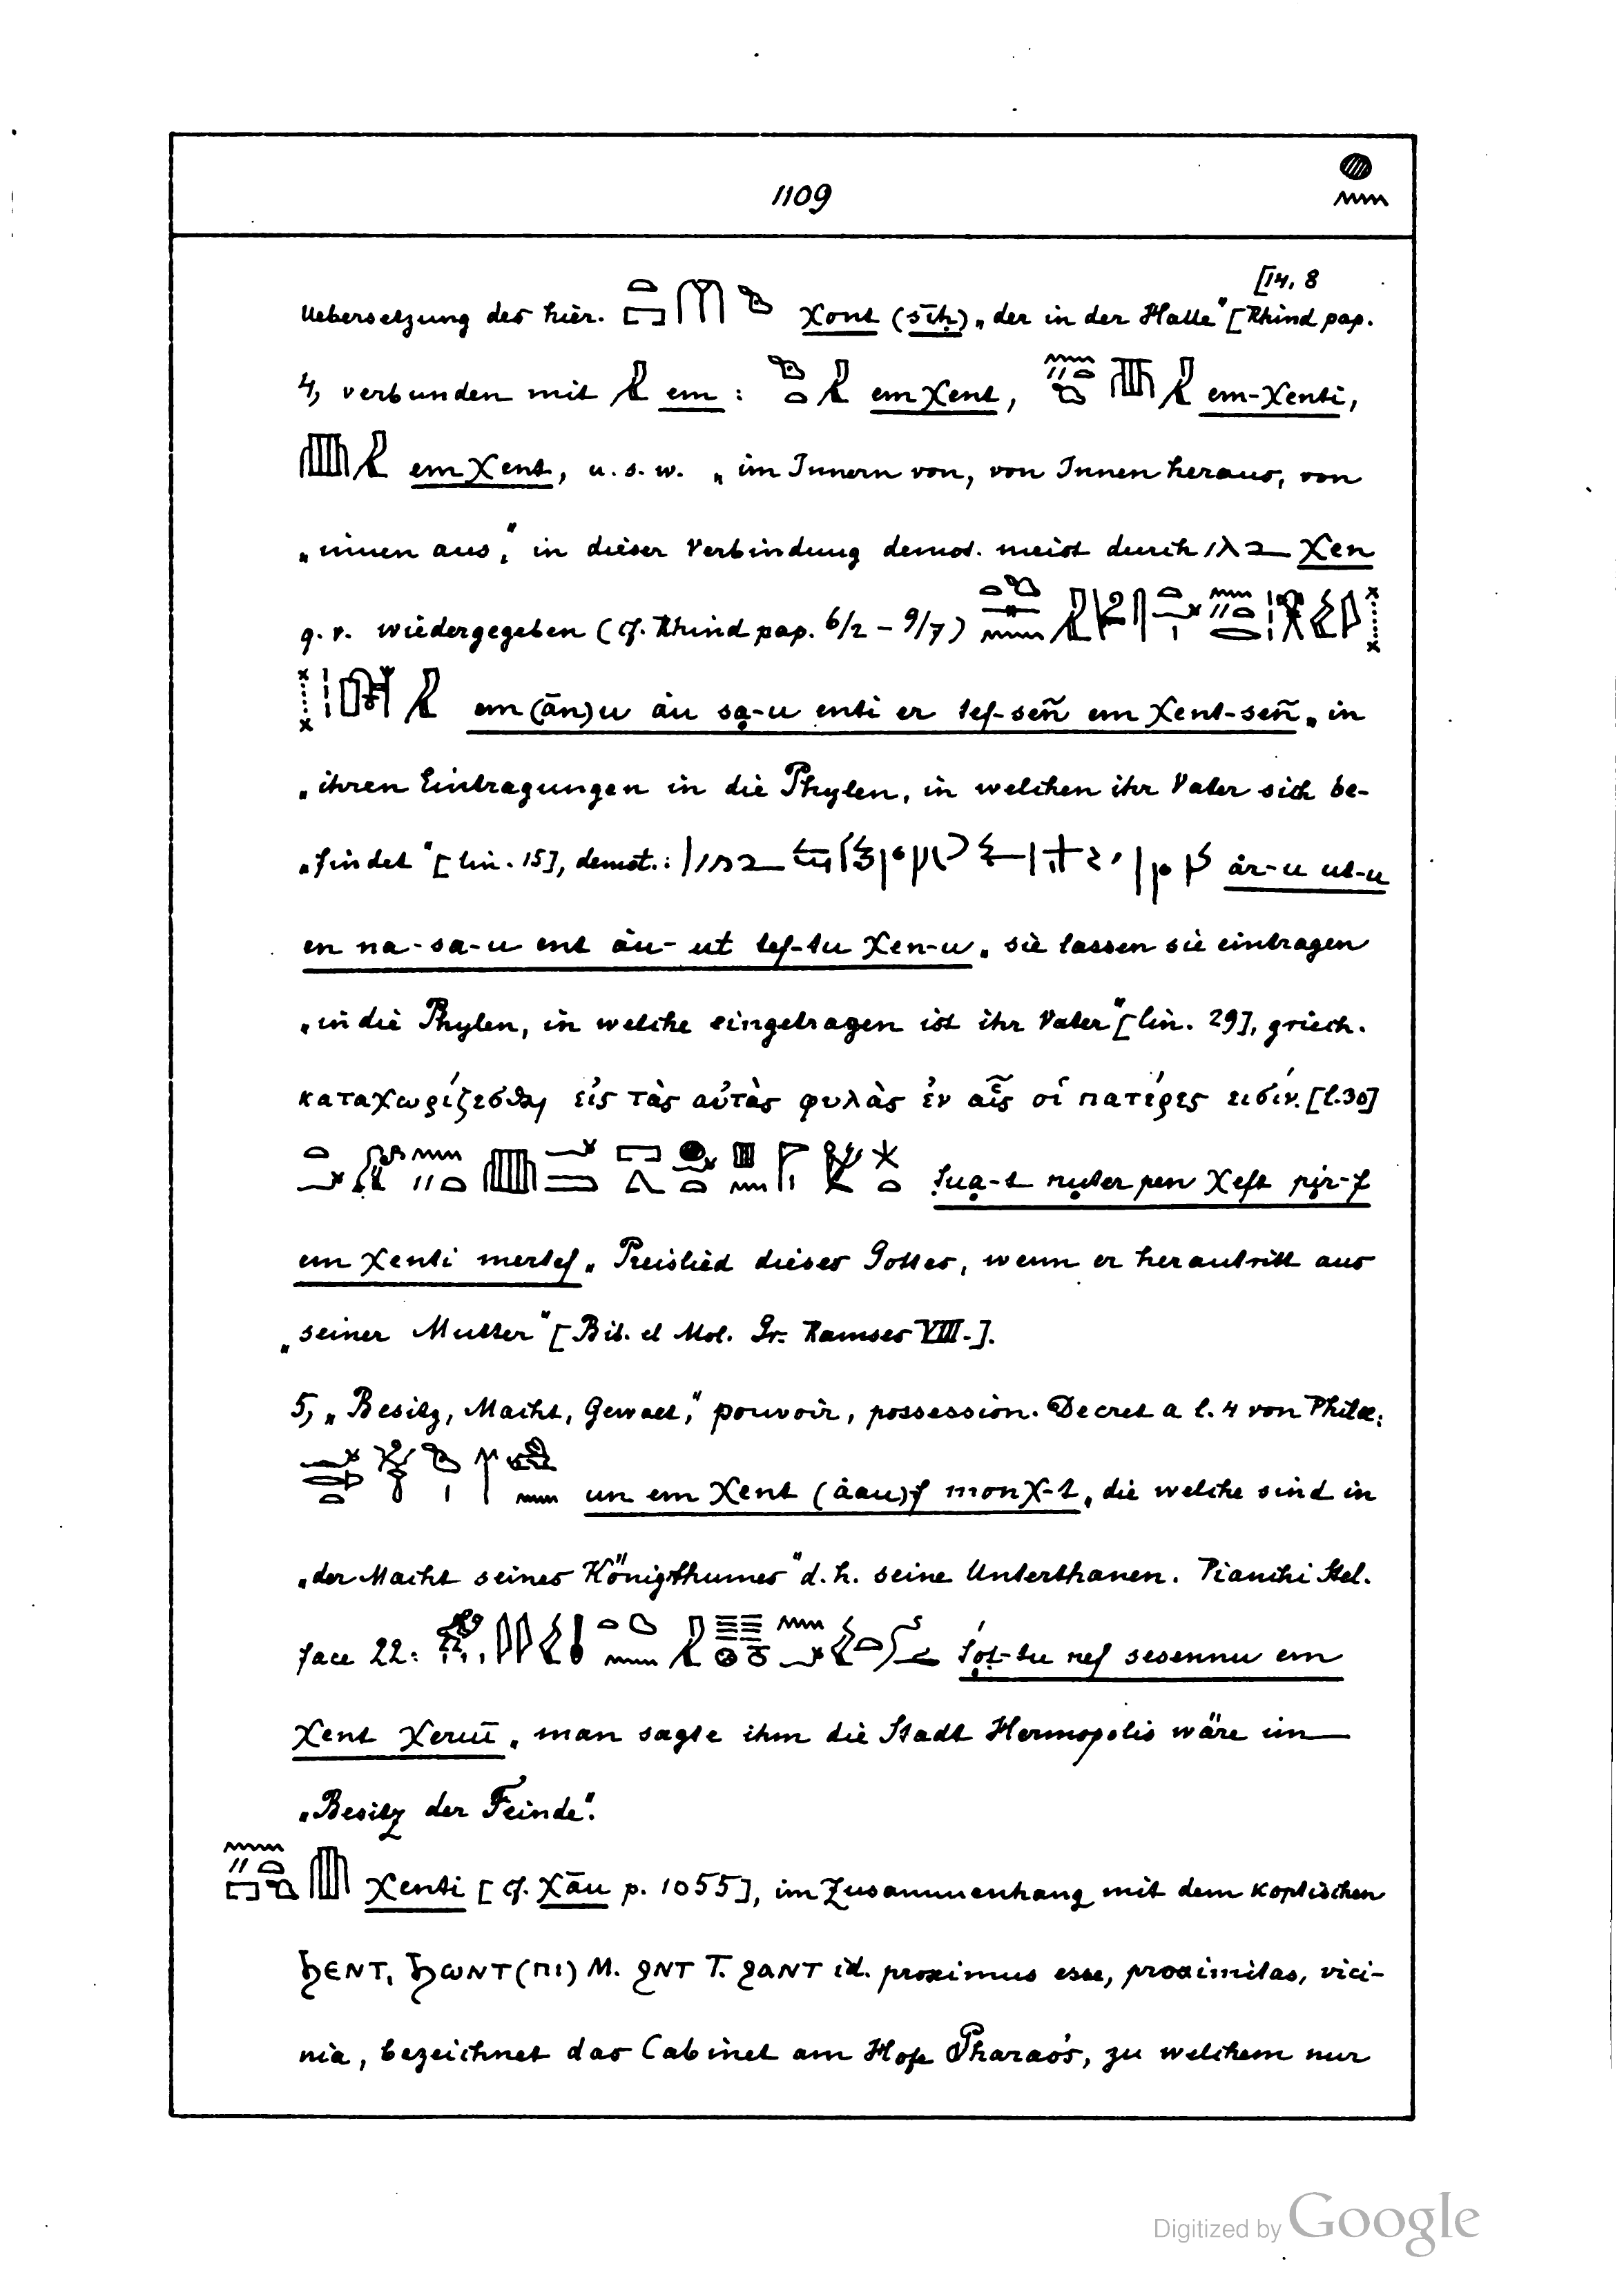 1109
[14, 8
Uebersetzung des hier. χont (sīḥ) „der in der Halle“ [Rhind pap.
4, verbunden mit em : em χent, em-χenti,
em χent, u. s. w. „im Innern von, von Innen heraus, von
„innen aus,“ in dieser Verbindung demot. meist durch χen
q. v. wiedergegeben (cf. Rhind pap. 6/2 – 9/7)
em (ān)u áu sa-u enti er tef-señ em χent-señ „in
„ihren Eintragungen in die Phylen, in welchen ihr Vater sich be-
„findet“ [lin. 15], demot.: ár-u ut-u
en na-sa-u ent áu-ut tef-tu χen-u „sie lassen sie eintragen
„in die Phylen, in welche eingetragen ist ihr Vater“ [lin. 29], griech.
καταχωρίζεσθαι εἰς τὰς αὐτὰς φυλὰς ἐν αἷς οἱ πατέρες εισίν. [l.30]
ṭua-t nuter pen χeft pir-f
em χenti mertef „Preislied dieses Gottes, wenn er heraustritt aus
„seiner Mutter“ [Bib. el Mol. Gr. Ramses VIII.].
5, „Besitz, Macht, Gewalt,“ pouvoir, possession. Decret a l. 4 von Philæ:
un em χent (áau)f monχ-t „die welche sind in
„der Macht seines Königthumes“ d. h. seine Unterthanen. Pianchi Stel.
face 22: ṭoṭ-tu nef sesennu em
χent χeruū „man sagte ihm die Stadt Hermopolis wäre im
„Besitz der Feinde“.
χenti [cf. χāu p. 1055], im Zusammenhang mit dem koptischen
ϧⲉⲛⲧ, ϧⲱⲛⲧ (ⲡⲓ) M. ϩⲛⲧ T. ϩⲁⲛⲧ id. proximus esse, proximitas, vici-
nia, bezeichnet das Cabinet am Hofe Pharao's, zu welchem nur
Digitized by Google